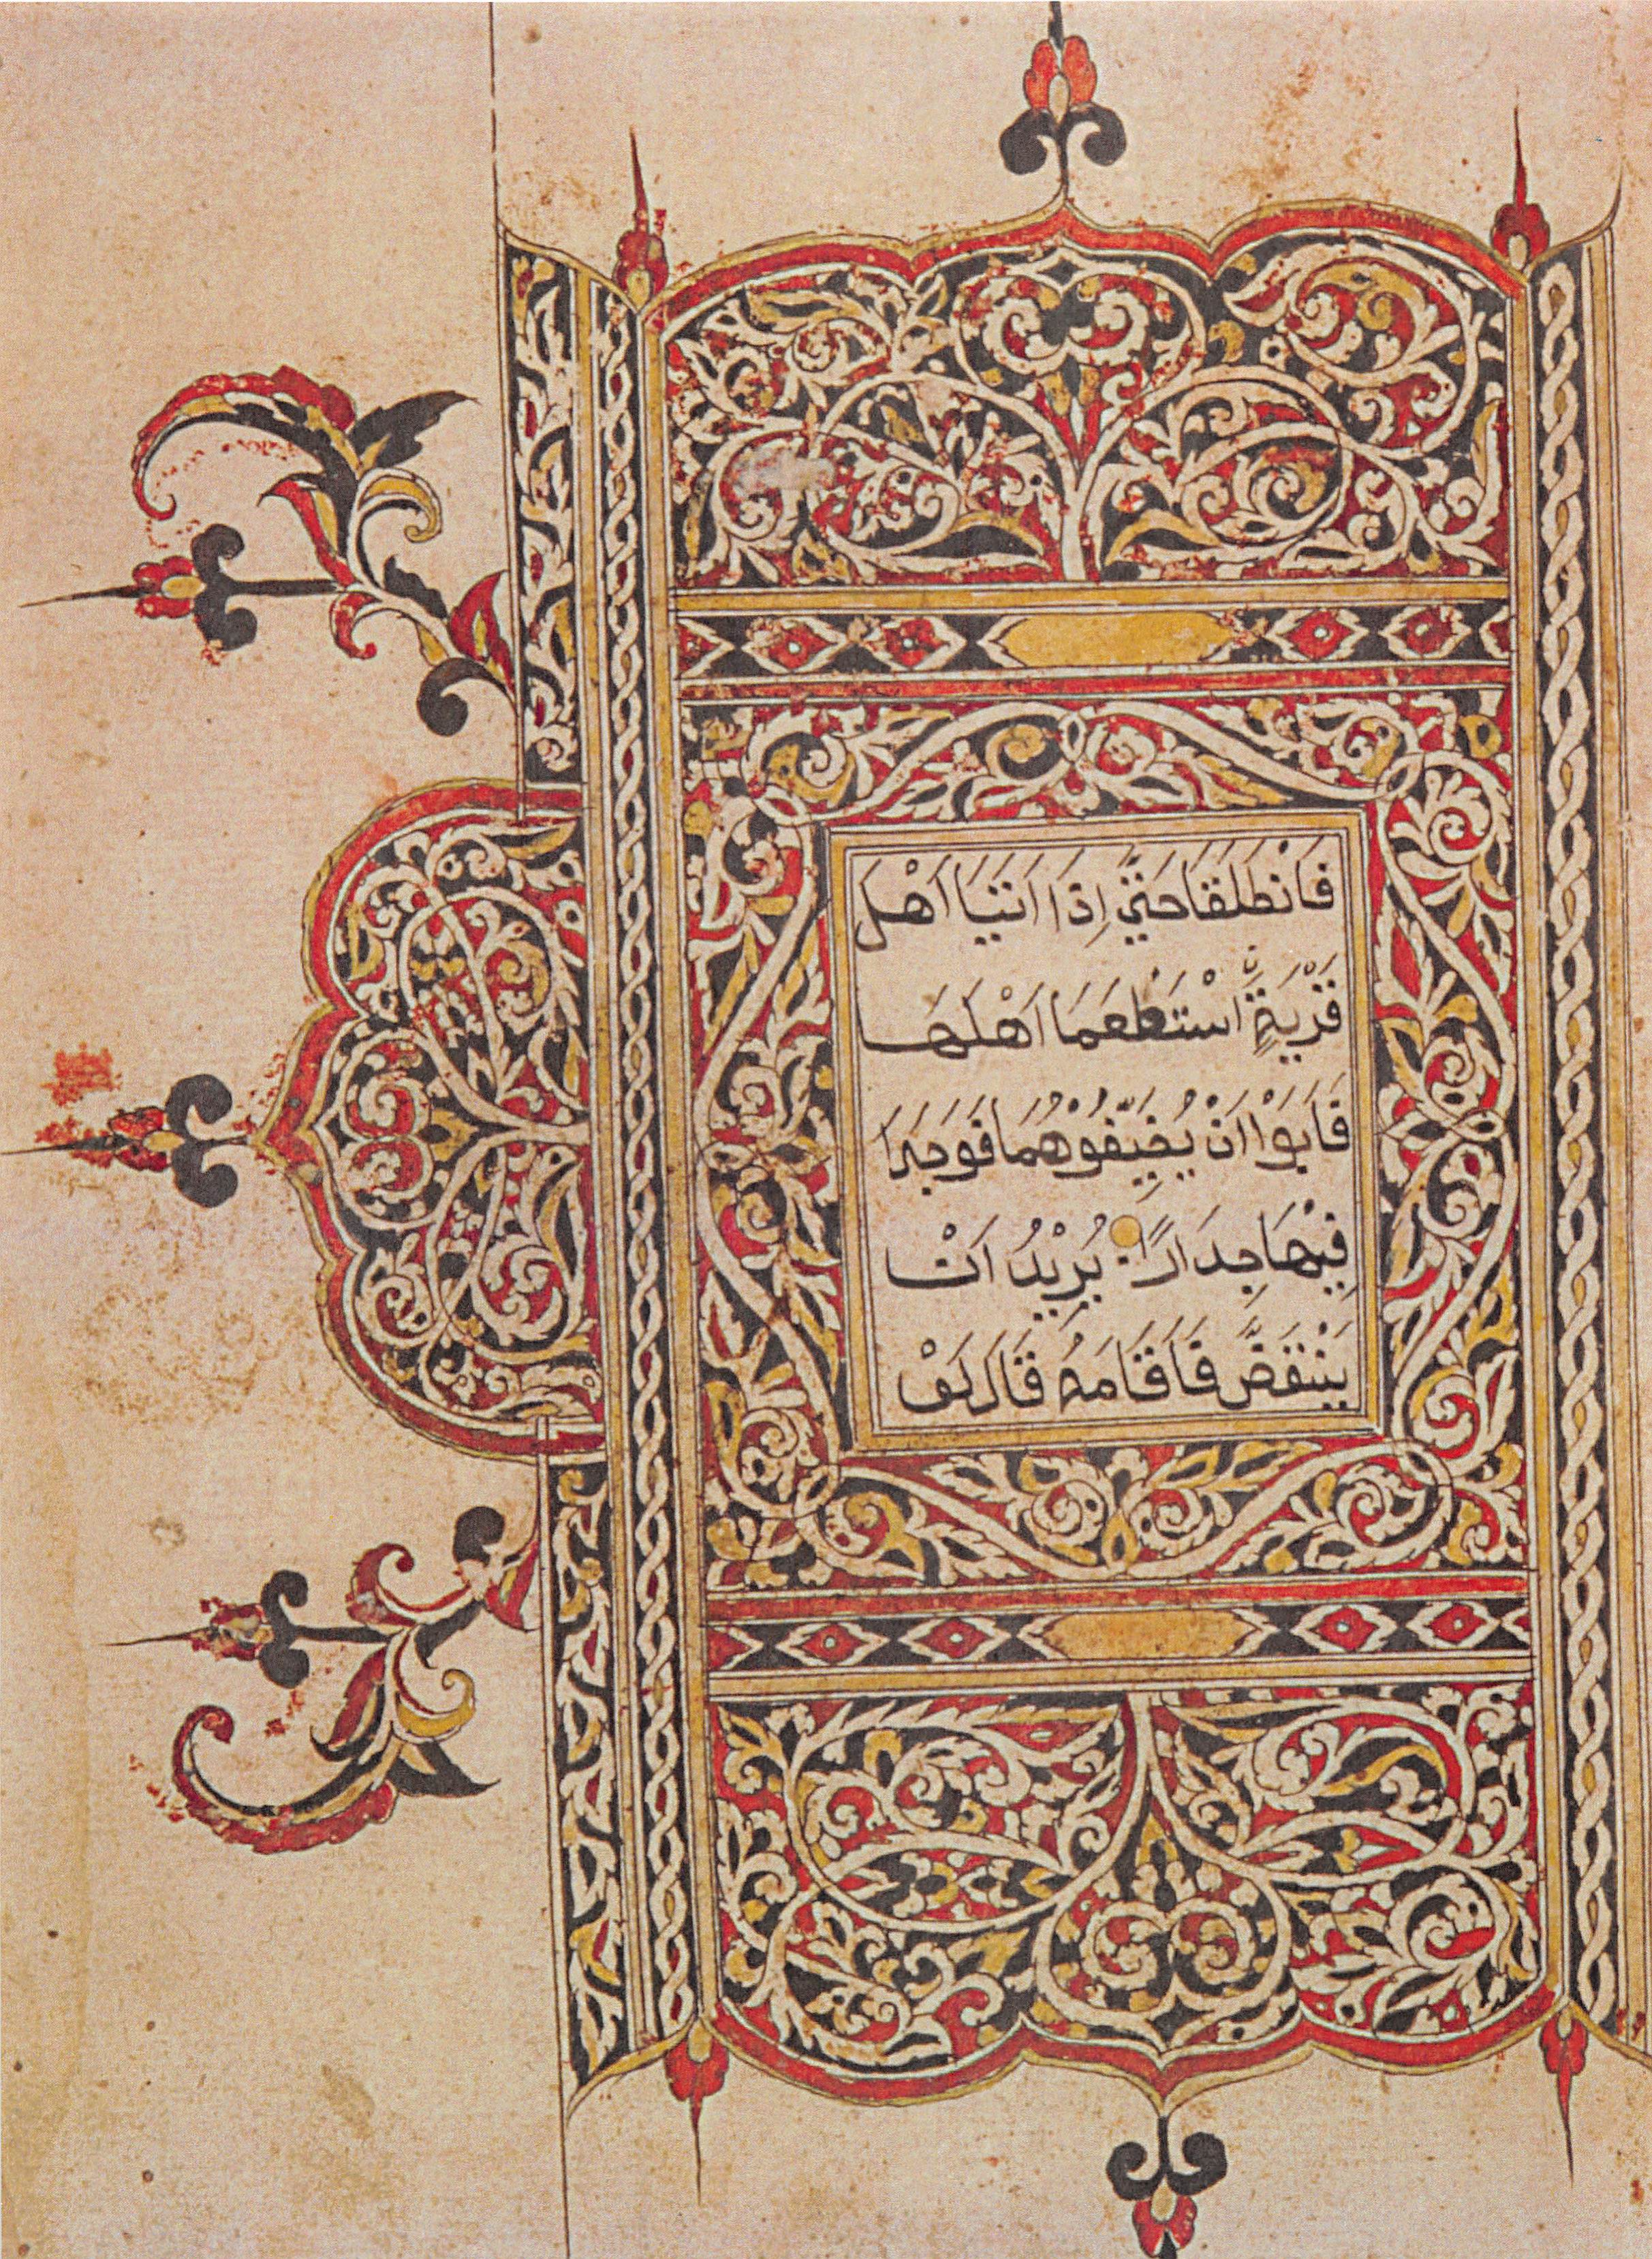 فَانْطَلَقَا حَتَّىٓ اِذَا اَتَيَا اَهْلَ
قَرْيَةٍ اسْتَطْعَمَا اَهْلَهَا
فَاَبَوْا اَنْ يُضَيِّفُوْهُمَا فَوَجَدَا
فِيْهَا جِدَارًا يُرِيْدُ اَنْ
يَنْقَضَّ فَاَقَامَهُ قَالَ لَوْ